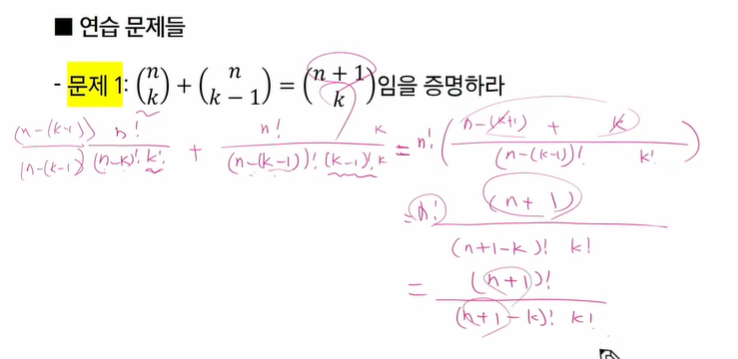 ■ 연습 문제들
- 문제 1: (n k) + (n k − 1) = (n + 1 k)임을 증명하라
(n-(k-1)) n! / (n-(k-1)) (n-k)! k! + n! k / (n-(k-1))! (k-1)! k = n! ( n-(k+1) + k / (n-(k-1))! k! )
= n! (n + 1) / (n+1-k)! k!
= (n+1)! / (n+1-k)! k!